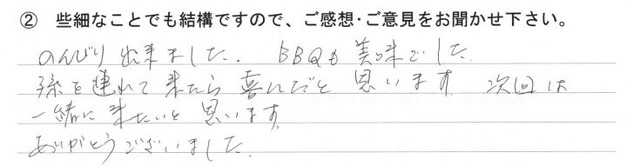 ② 些細なことでも結構ですので、ご感想・ご意見をお聞かせ下さい。
のんびり出来ました。 BBQも美味でした
孫を連れて来たら喜んだと思います 次回は
一緒に来たいと思います
ありがとうございました。